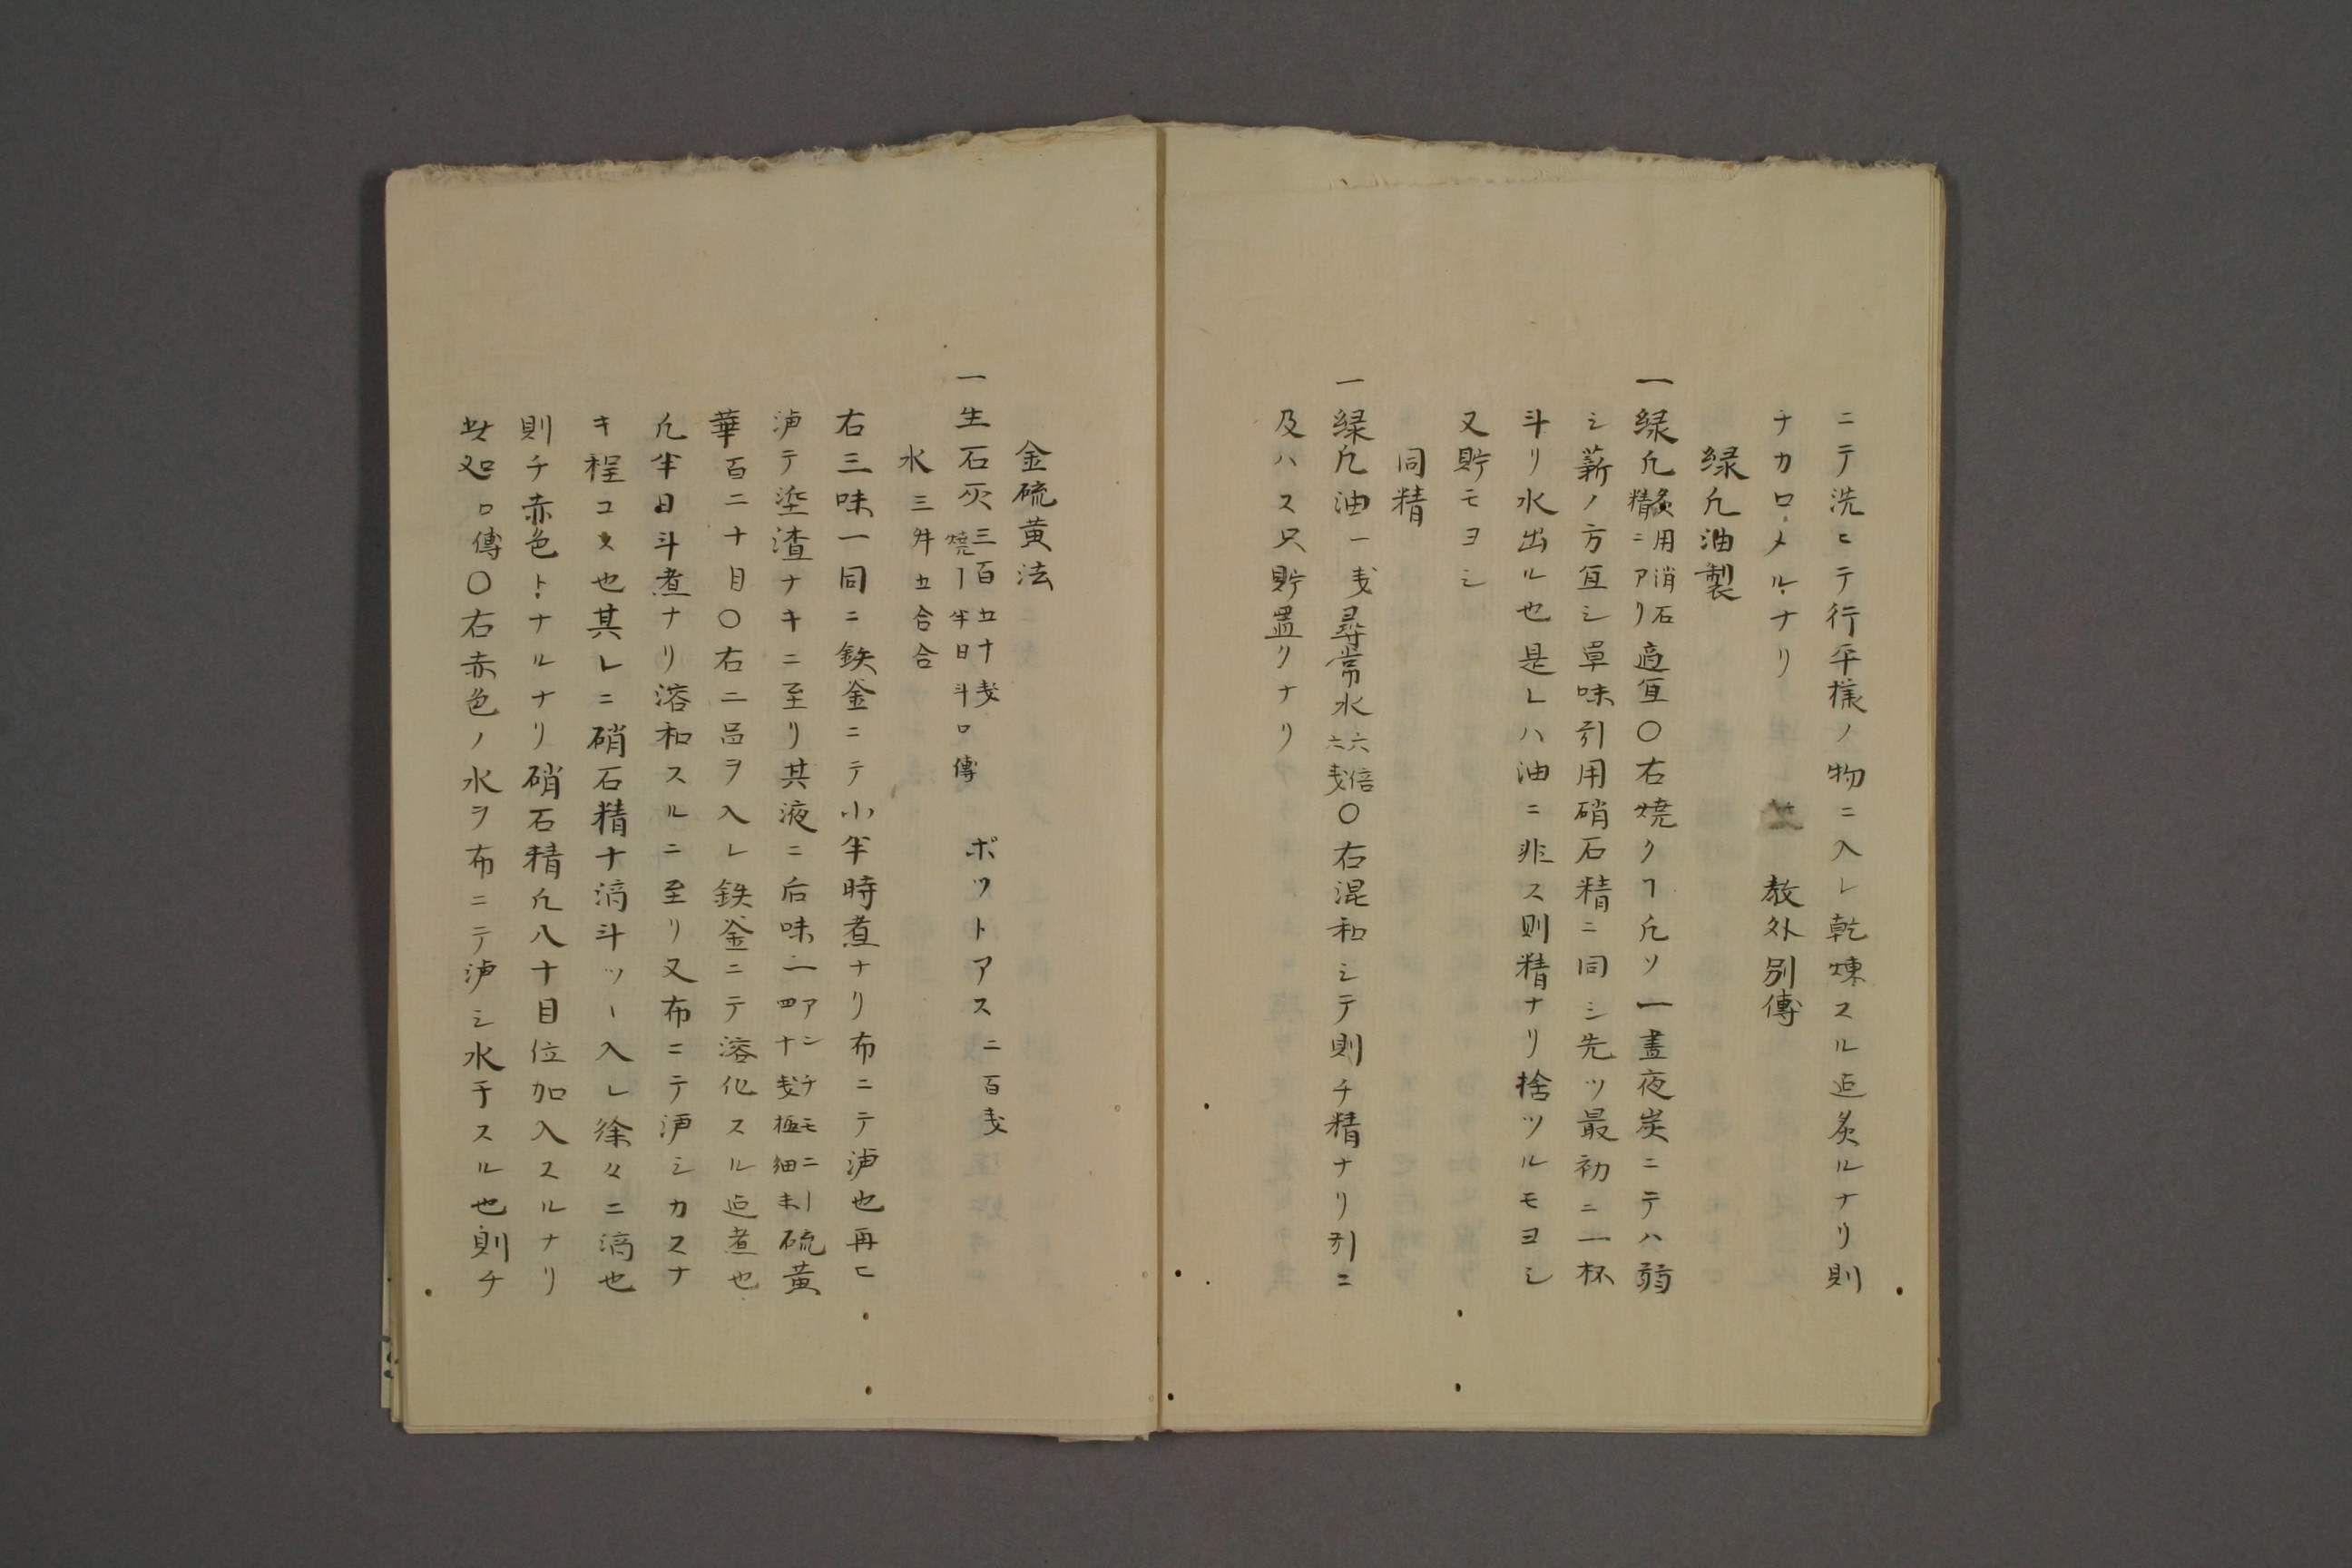 ニテ洗ヒテ行平様ノ物ニ入レ乾煉スル迄炙ルナリ則
チカロメルナリ　教外別傳
緑凢油製
一緑凢 炙用消石精ニアリ 適宜〇右焼クヿ凢ソ一晝夜炭ニテハ弱
シ薪ノ方宜シ単味引用硝石精ニ同シ先ツ最初ニ一杯
斗リ水出ル也是レハ油ニ非ス則精ナリ捨ツルモヨシ
又貯モヨシ
同精
一緑凢油一戔尋常水 六倍六戔 〇右混和シテ則チ精ナリ引ニ
及ハス只貯置リナリ
金硫黄法
一生石灰 三百五十戔焼ヿ半日斗口傳　ポットアス二百戔
水三舛五合合
右三味一同ニ鉄釜ニテ小半時煮ナリ布ニテ滤也再ヒ
滤テ塗渣ナキニ至リ其液ニ后味一 アンチモニ四十戔極細末 硫黄
華百二十目〇右二品ヲ入レ鉄釜ニテ溶化スル迄煮也
凢半日斗煮ナリ溶和スルニ至リ又布ニテ滤シカスナ
キ程コス也其レニ硝石精十滴斗ツヽ入レ徐々ニ滴也
則チ赤色トナルナリ硝石精凢八十目位加入スルナリ
此処口傳〇右赤色ノ水ヲ布ニテ滤シ水干スル也則チ